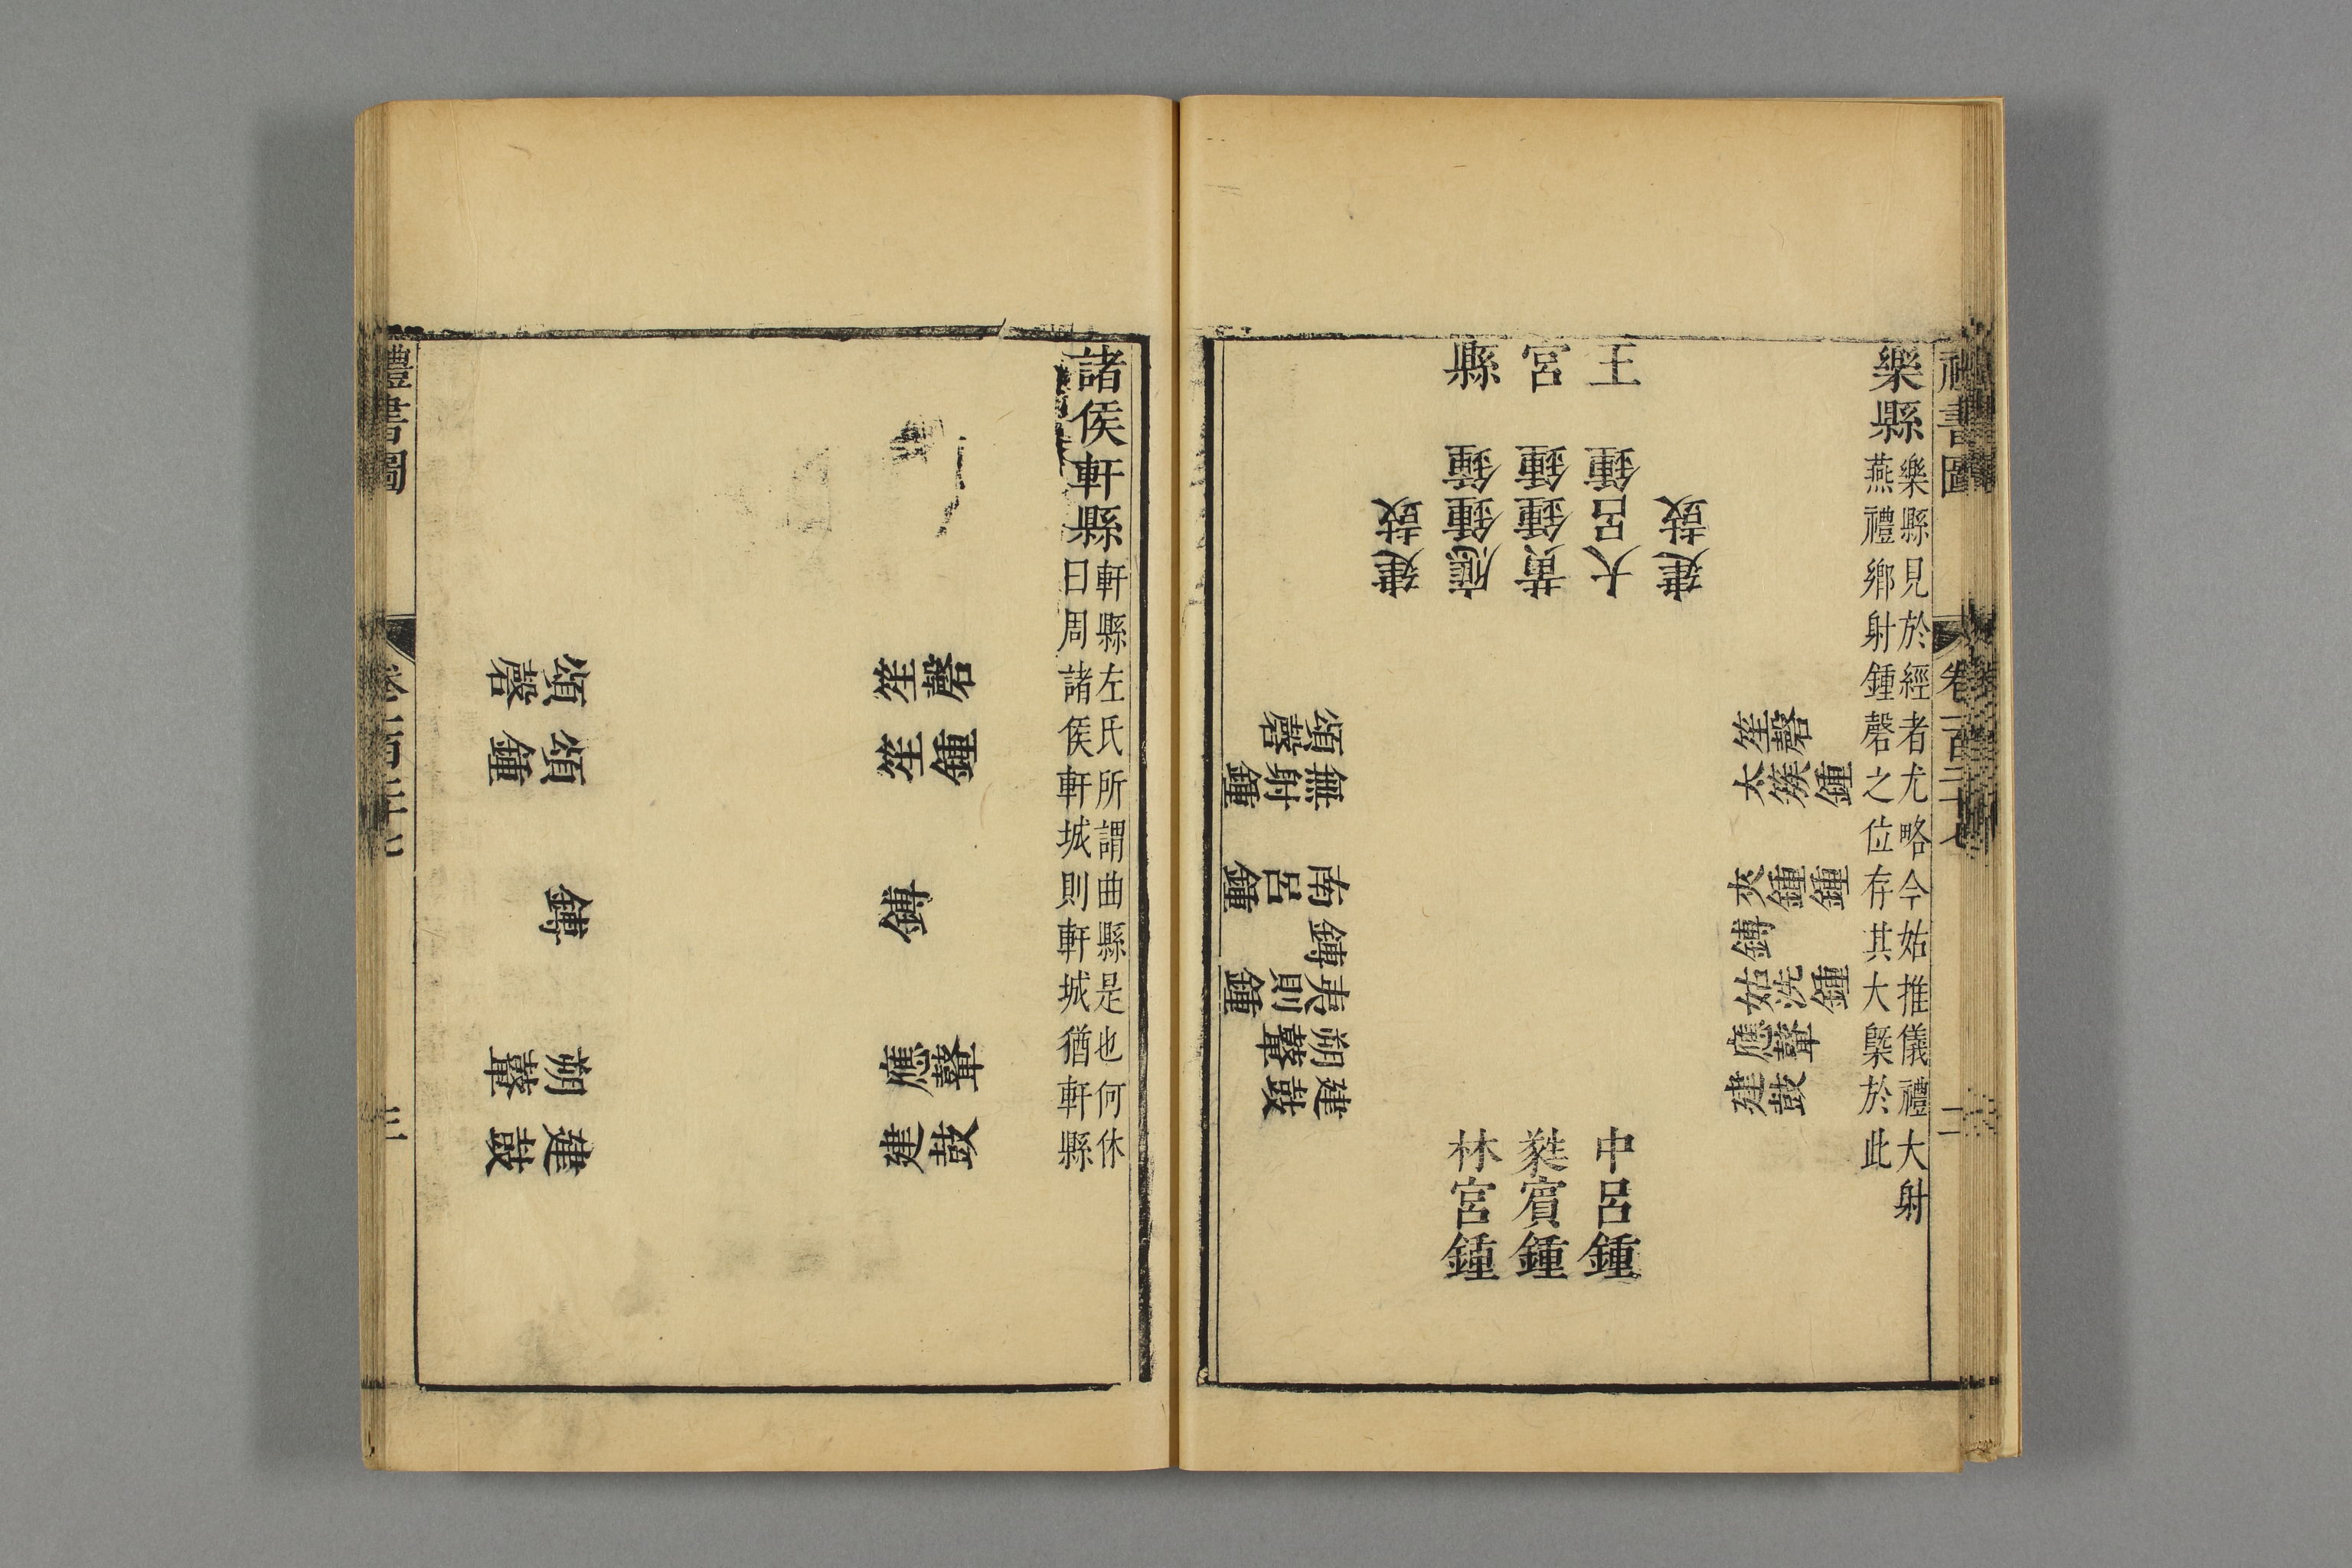 禮書圖 卷一百二十七 二
樂縣
樂縣見於經者尤略今姑推儀禮大射
燕禮鄉射鍾磬之位存其大槩於此
王宮縣
建鼓
大呂鍾
黃鍾鍾
應鍾鍾
建鼓
笙磬
太簇鍾
夾鍾鍾
鎛
姑洗鍾
應鼙
建鼓
中呂鍾
蕤賓鍾
林宮鍾
頌磬
無射鍾
南呂鍾
鎛
夷則鍾
朔鼙
建鼓
諸侯軒縣
軒縣左氏所謂曲縣是也何休
曰周諸侯軒城則軒城猶軒縣
笙磬
笙鍾
鎛
應鼙
建鼓
頌磬
頌鍾
鎛
朔鼙
建鼓
禮書圖